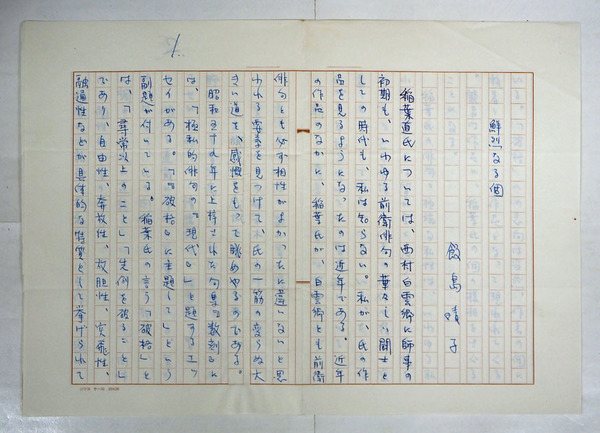 1
鮮烈なる個
飯島晴子
稲葉直氏については、西村白雲郷に師事の
初期も、いわゆる前衛俳句の華々しい闘士と
しての時代も、私は知らない。私が、氏の作
品を見るようになったのは近年である。近年
の作品のなかに、稲葉氏が、白雲郷とも前衛
俳句とも必ず相性がよかったに違いないと思
われる要素を見つけて、氏の一筋の変らぬ大
きい道を、感慨をもって眺めやるのである。
昭和五十九年に上梓された句集『数刻』に
は、「極私的俳句の『現代』」と題するエッ
セイがある。「『破格』に主題して」という
副題が付いている。稲葉氏の言う「破格」と
は、「尋常以上のこと」「先例を破ること」
であり、自由性、奔放性、放胆性、
融通性などが具体的な特質として挙げられて